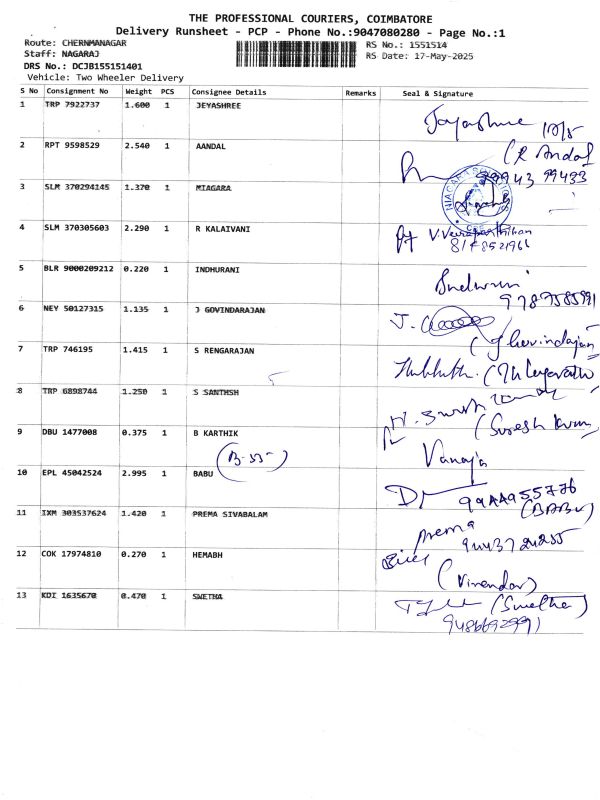 THE PROFESSIONAL COURIERS, COIMBATORE
Delivery Runsheet - PCP - Phone No.:9047080280 - Page No.:1
Route: CHERNMANAGAR RS No.: 1551514
Staff: NAGARAJ RS Date: 17-May-2025
DRS No.: DCJB155151401
Vehicle: Two Wheeler Delivery
S No Consignment No Weight PCS Consignee Details Remarks Seal & Signature
1 TRP 7922737 1.600 1 JEYASHREE Jayashree
2 RPT 9598529 2.540 1 AANDAL (R Andal
99943 99433
3 SLM 370294145 1.370 1 MIAGARA
4 SLM 370305603 2.290 1 R KALAIVANI
5 BLR 9000209212 0.220 1 INDHURANI
6 NEY 50127315 1.135 1 J GOVINDARAJAN J.
7 TRP 746195 1.415 1 S RENGARAJAN
8 TRP 6898744 1.250 1 S SANTHSH
(Suresh kum
9 DBU 1477008 0.375 1 B KARTHIK Vanaja
(B-55)
10 EPL 45042524 2.995 1 BABU
(BABU)
11 IXM 303537624 1.420 1 PREMA SIVABALAM Prema
12 COK 17974810 0.270 1 HEMABH
(Virendar)
13 KDI 1635670 0.470 1 SWETHA (Swetha)